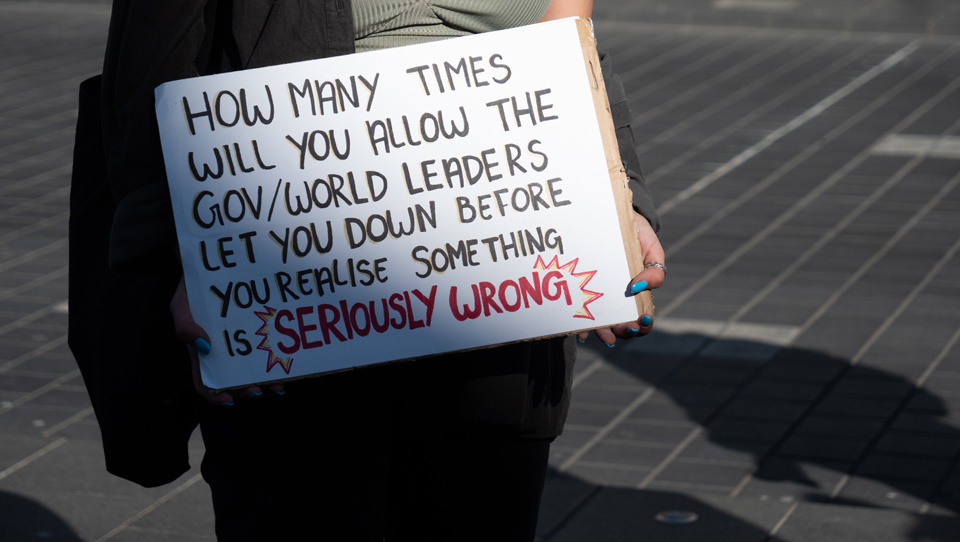 HOW MANY TIMES
WILL YOU ALLOW THE
GOV/WORLD LEADERS
LET YOU DOWN BEFORE
YOU REALISE SOMETHING
IS SERIOUSLY WRONG